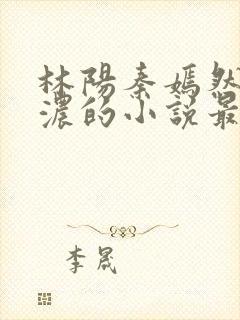 林陽秦嫣然
濃的小說最
李晟